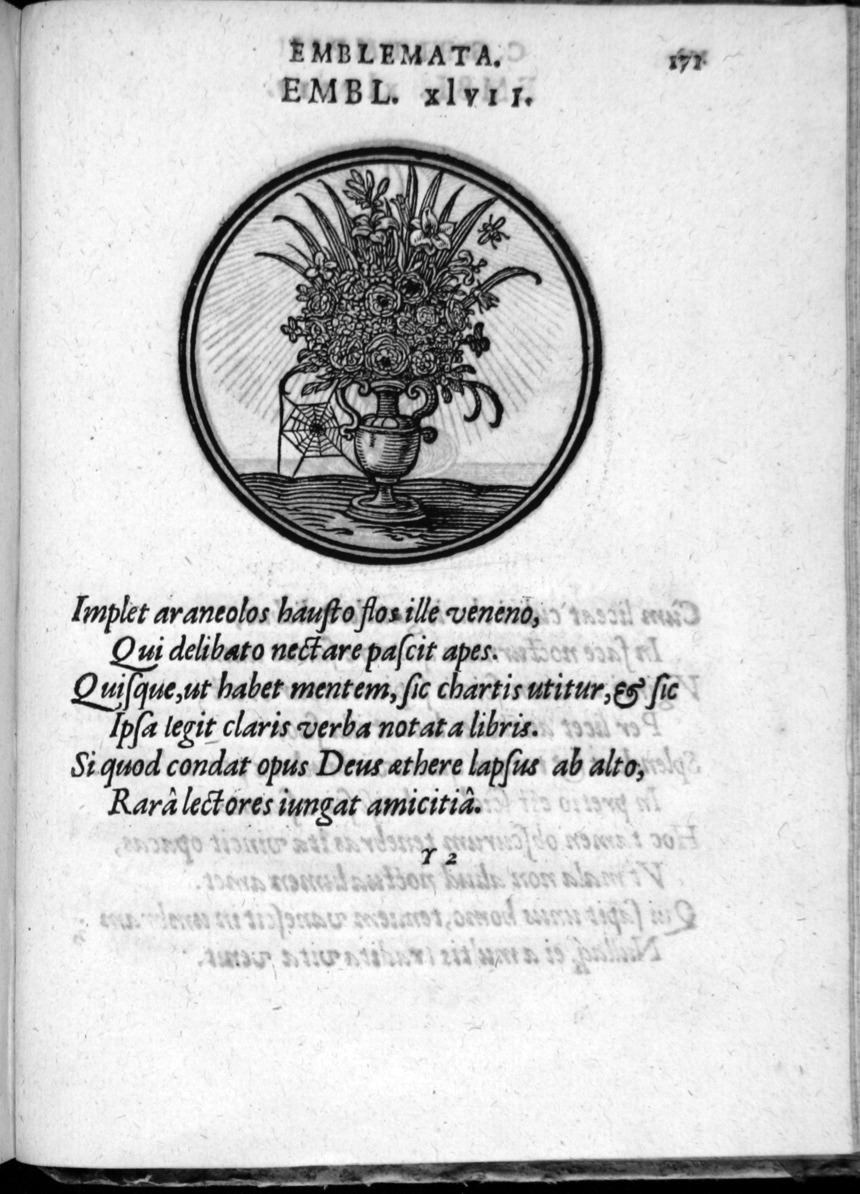 EMBLEMATA. 171
EMBL. xlvii.
Implet araneolos hausto flos ille veneno,
Qui delibato nectare paſcit apes.
Quiſque, ut habet mentem, ſic chartis utitur, & ſic
Ipſa legit claris verba notata libris.
Si quod condat opus Deus æthere lapſus ab alto,
Rarâ lectores iungat amicitiâ.
Y 2